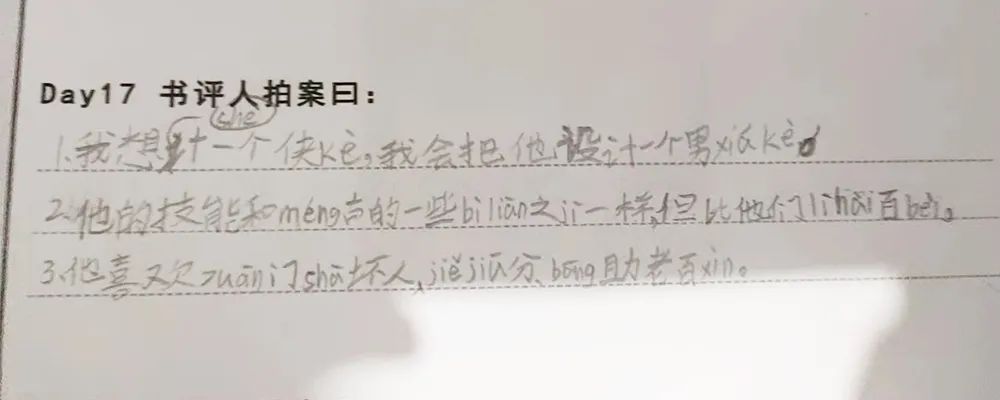 Day17 书评人拍案曰：
shè
1.我想计一个侠kè，我会把他设计一个男xiá kè。
2.他的技能和méng古的一些bì liàn之jì一样，但比他们lì hài百bèi。
3.他喜欢zuān门shā坏人、jiě jiù分、bāng助老百xìn。